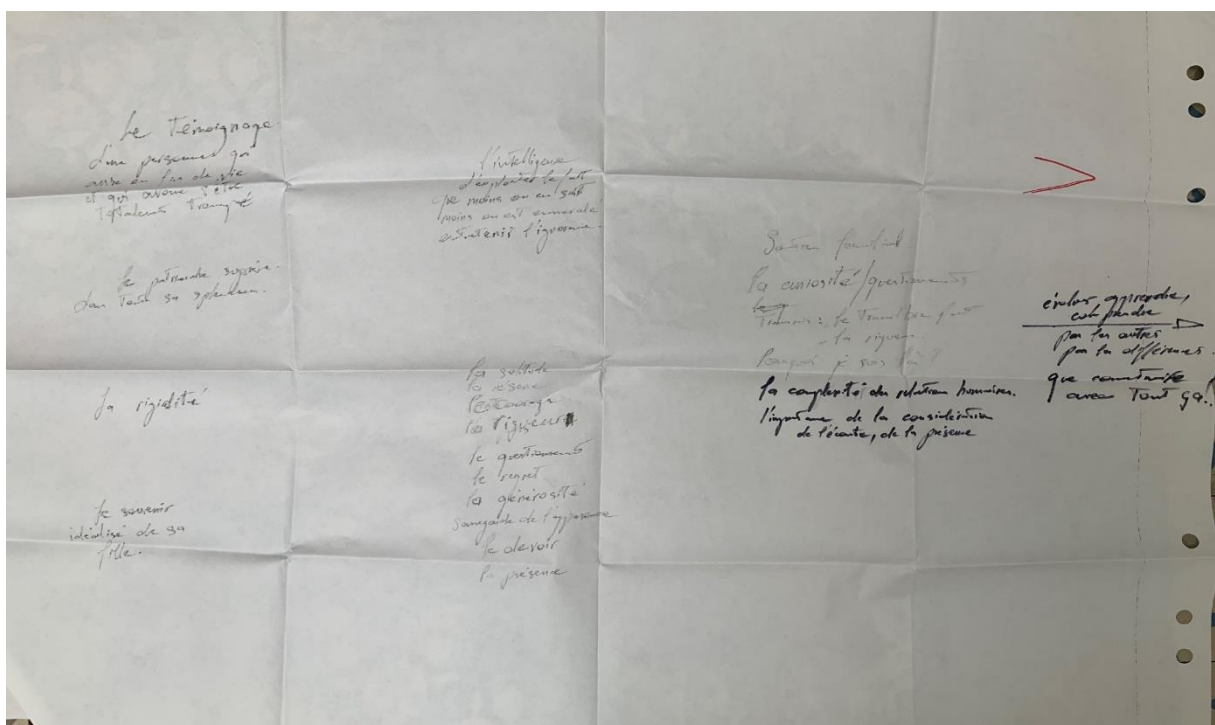 Le Témoignage
d'une personne qui
arrive en fin de vie
et qui avoue s'être
totalement trompé
le patriarche suprême
dans toute sa splendeur.
la rigidité
le souvenir
idéalisé de sa
fille.
l'intelligence
d'exploiter le fait
que moins on en sait
moins on est emmerdé
entretenir l'ignorance.
la solitude
la réserve
le courage
la rigueur
le questionnement
le regret
la générosité
sauvegarde de l'apparence
le devoir
la présence
Soutien familial
la curiosité/questionnements
la rigueur
Pourquoi je suis là?
la complexité des relations humaines.
l'importance de la considération
de l'écoute, de la présence
évoluer apprendre,
comprendre
par les autres
par la différence
que construire
avec Tout ça!